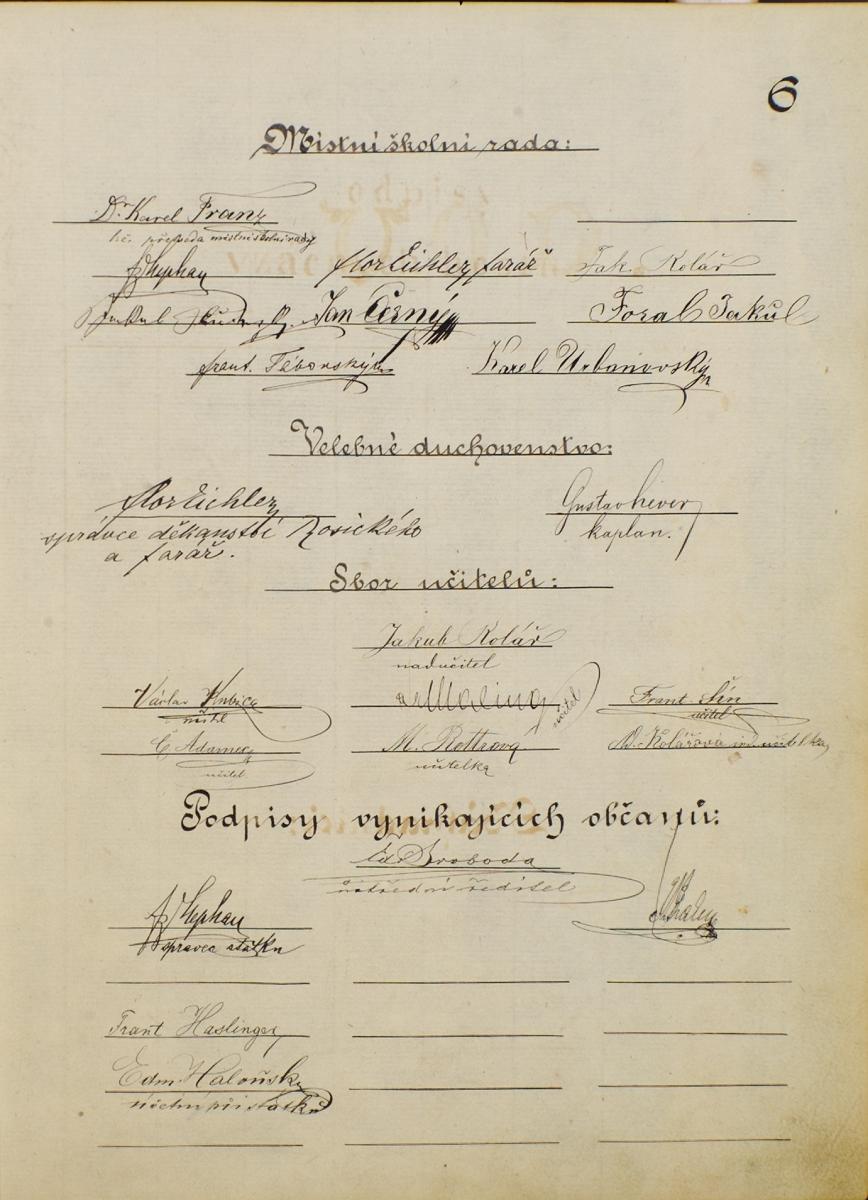 6
Místní školní rada:
Dr Karel Franz
předseda místní školní rady
Flor Eichler, farář Jak. Kolář
Jakub Jan Černý Foral Jakub
Frant. Táborský Karel Urbanovský
Velebné duchovenstvo:
Flor Eichler, Gustav
správce děkanství Rosického kaplan.
a farář.
Sbor učitelů:
Jakub Kolář
nadučitel
Václav Frant. Šín
učitel učitel učitel
Č. Adamec M. Rottrová M. Kolářová ind. učitelka
učitel učitelka
Podpisy vynikajících občanů:
Ed. Svoboda
ústřední ředitel
správce statku
Frant Haslinger
Edm. Haloňsky
účetní při statku